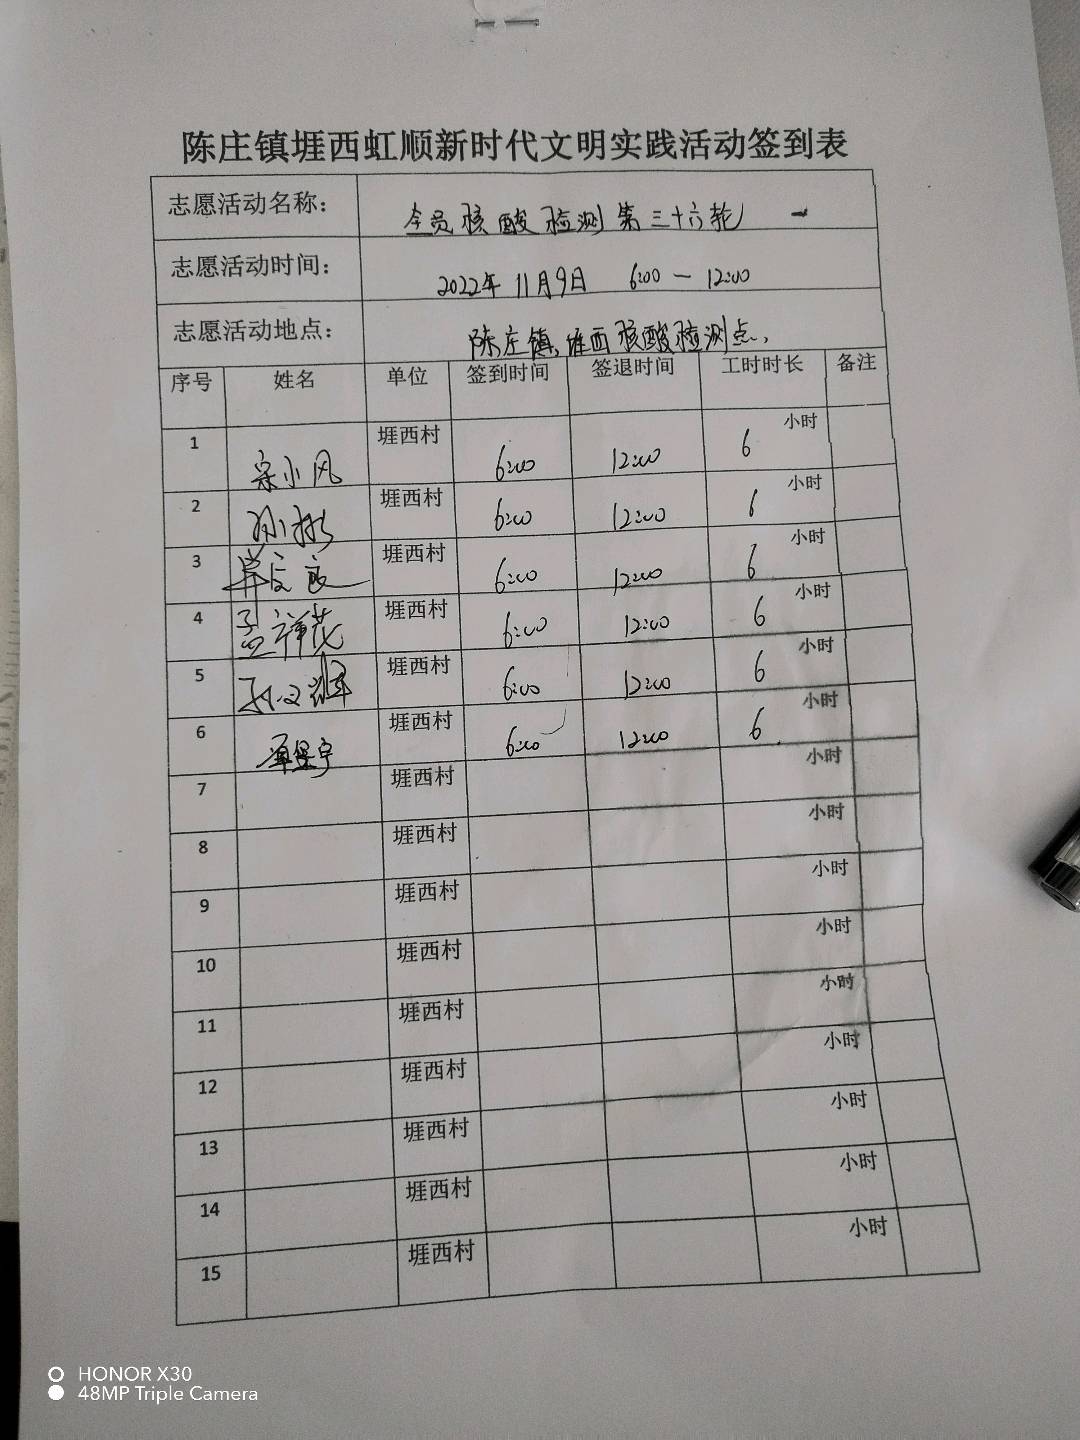 陈庄镇堐西虹顺新时代文明实践活动签到表
志愿活动名称： 全员核酸检测第三十六轮
志愿活动时间： 2022年11月9日 6:00 — 12:00
志愿活动地点： 陈庄镇、堐西核酸检测点、
序号 姓名 单位 签到时间 签退时间 工时时长 备注
1 宋小风 堐西村 6:00 12:00 6 小时
2 孙彬 堐西村 6:00 12:00 6 小时
3 堐西村 6:00 12:00 6 小时
4 孟祥花 堐西村 6:00 12:00 6 小时
5 堐西村 6:00 12:00 6 小时
6 堐西村 6:00 12:00 6 小时
7 堐西村 小时
8 堐西村 小时
9 堐西村 小时
10 堐西村 小时
11 堐西村 小时
12 堐西村 小时
13 堐西村 小时
14 堐西村 小时
15 堐西村 小时
HONOR X30
48MP Triple Camera